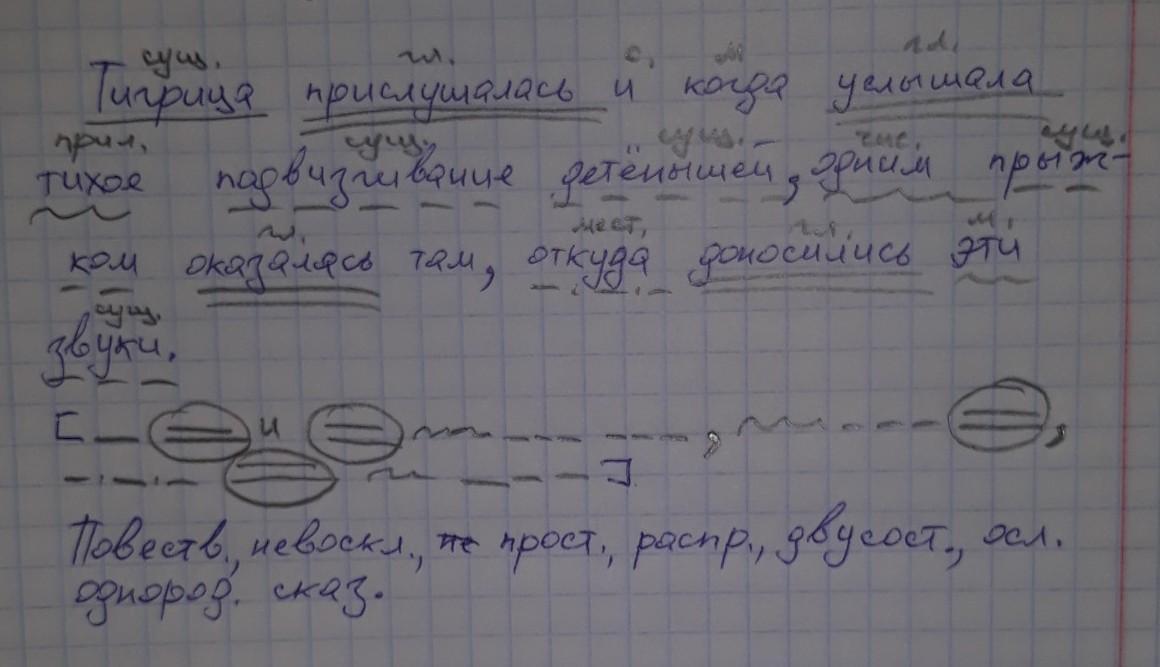 сущ. гл. с. м гл.
Тигрица прислушалась и когда услышала
прил. сущ. сущ. чис. сущ.
тихое повизгивание детёнышей, одним прыж-
гл. мест. гл. м.
ком оказалась там, откуда доносились эти
сущ.
звуки.
[ и , ,
]
Повеств., невоскл., не прост., распр., двусост., осл.
однород. сказ.